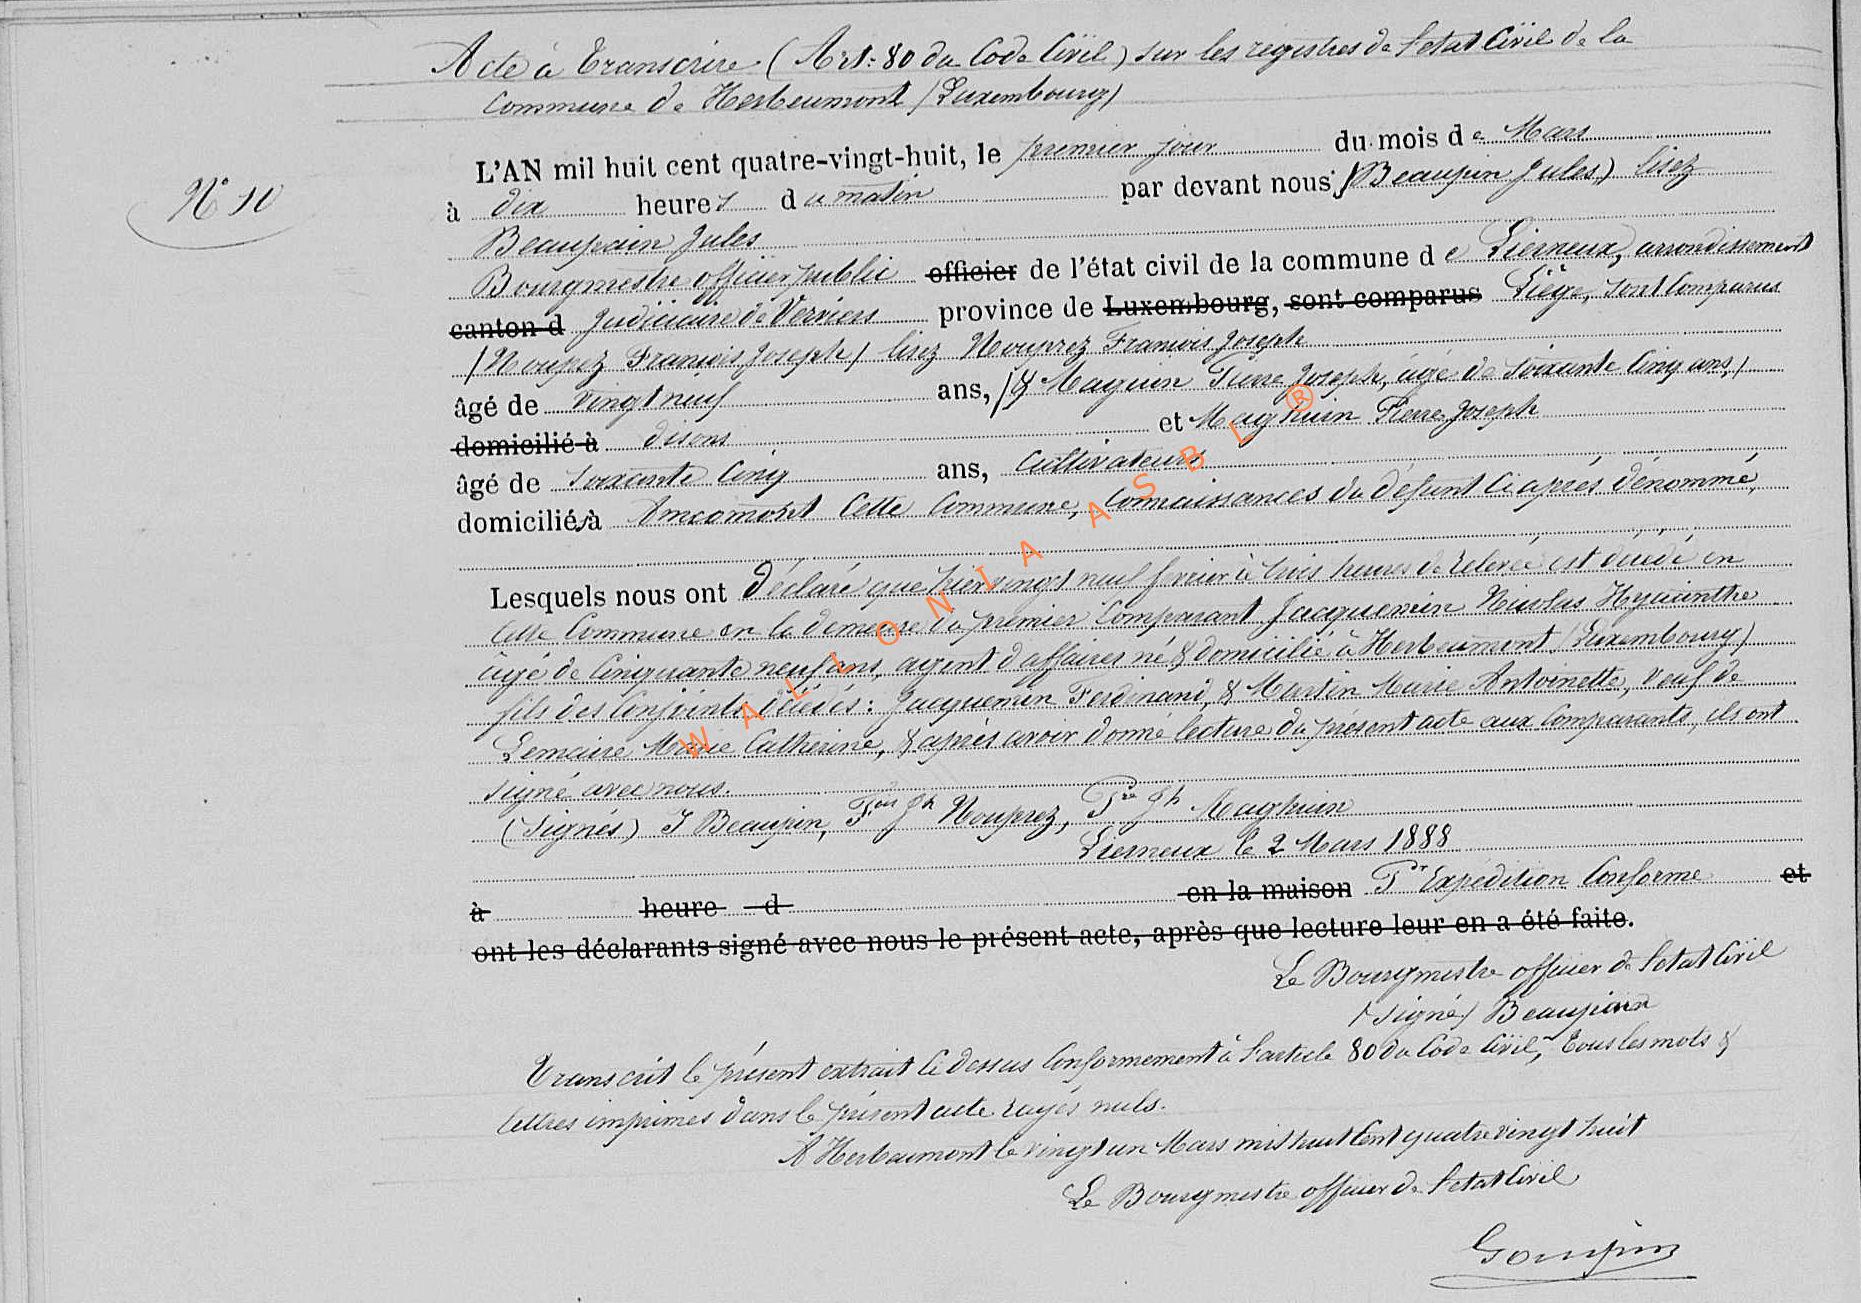 Acte à Transcrire (Art: 80 du Code Civil) sur les registres de l'etat Civil de la
Commune de Herbeumont (Luxembourg)
N° 10
L'AN mil huit cent quatre-vingt-huit, le premier jour du mois de Mars
à dix heures du matin par devant nous (Beaupin Jules,) lisez
Beaupain Jules
Bourgmestre officier public officier de l'état civil de la commune de Lierneux, arrondissement
canton d Judiciaire de Verviers province de Luxembourg, sont comparus Liége, sont Comparus
(Noupez François Joseph) lisez Nouprez François Joseph
âgé de vingt neuf ans, (& Maguin Pierre Joseph, âgé de soixante Cinq ans,)
domicilié à disons et Maghuin Pierre Joseph
âgé de soixante Cinq ans, Cultivateurs
domiciliés à Amcomont Cette Commune, Connaissances du défunt Ci après dénommé,
Lesquels nous ont déclaré que hier vingt neuf fevrier à trois heures de relevée est décédé en
Cette Commune en la demeure du premier Comparant Jacquemin Nicolas Hyacinthe
âgé de Cinquante neuf ans, agent d'affaires né & domicilié à Herbeumont (Luxembourg)
fils des Conjoints décédés: Jacquemin Ferdinand, & Martin Marie Antoinette, veuf de
Lemaire Marie Catherine, & après avoir donné lecture du présent acte aux Comparants, ils ont
signé avec nous.
(Signés) J Beaupin, Fois Jh Nouprez, Pre Jh Maghuin
Lierneux le 2 Mars 1888
à heure d en la maison Pr Expédition Conforme et
ont les déclarants signé avec nous le présent acte, après que lecture leur en a été faite.
Le Bourgmestre officier de l'etat Civil
(signé) Beaupain
Transcrit le présent extrait Ci dessus Conformement à l'article 80 du Code Civil, Tous les mots &
lettres imprimes dans le présent acte rayés nuls.
A Herbeumont le vingt un Mars mil huit Cent quatre vingt huit
Le Bourgmestre officier de l'etat Civil
WALLONIA ASBL ®